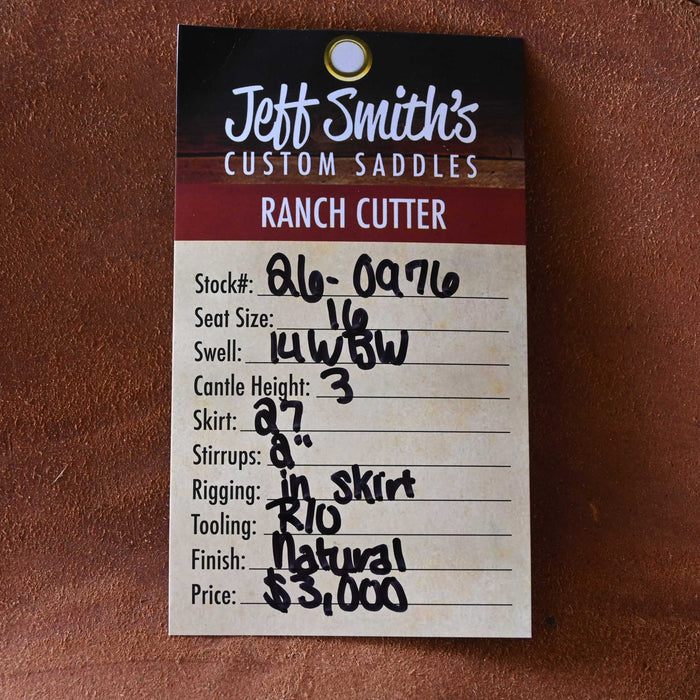 Jeff Smith's
CUSTOM SADDLES
RANCH CUTTER
Stock#: 26-0976
Seat Size: 16
Swell: 14WBW
Cantle Height: 3
Skirt: 27
Stirrups: 2"
Rigging: in skirt
Tooling: R10
Finish: Natural
Price: $3,000